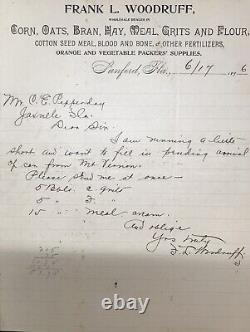 FRANK L. WOODRUFF,
WHOLESALE DEALER IN
CORN, OATS, BRAN, HAY, MEAL, GRITS AND FLOUR,
COTTON SEED MEAL, BLOOD AND BONE, & OTHER FERTILIZERS,
ORANGE AND VEGETABLE PACKERS' SUPPLIES.
Sanford, Fla., 6/17 6
Mr. C. E. Pepperday
Jaxville Fla
Dear Sir:
I am running a little
short and want to fill in pending arrival
of car from Mt Vernon.
Please send me at once—
5 Bbls c grits
5 " F "
15 " meal
And oblige
Yrs truly
F L Woodruff